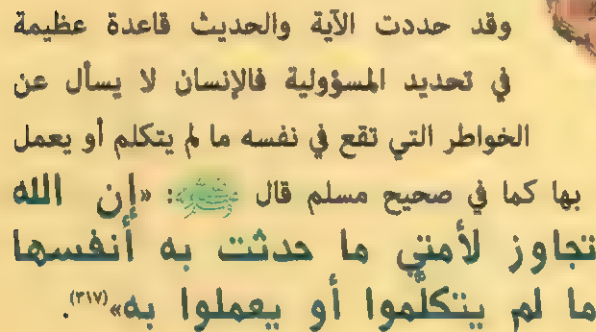 وقد حددت الآية والحديث قاعدة عظيمة
في تحديد المسؤولية فالإنسان لا يسأل عن
الخواطر التي تقع في نفسه ما لم يتكلم أو يعمل
بها كما في صحيح مسلم قال ﷺ: «إن الله
تجاوز لأمتي ما حدثت به أنفسها
ما لم يتكلَّموا أو يعملوا به»(٣١٧).